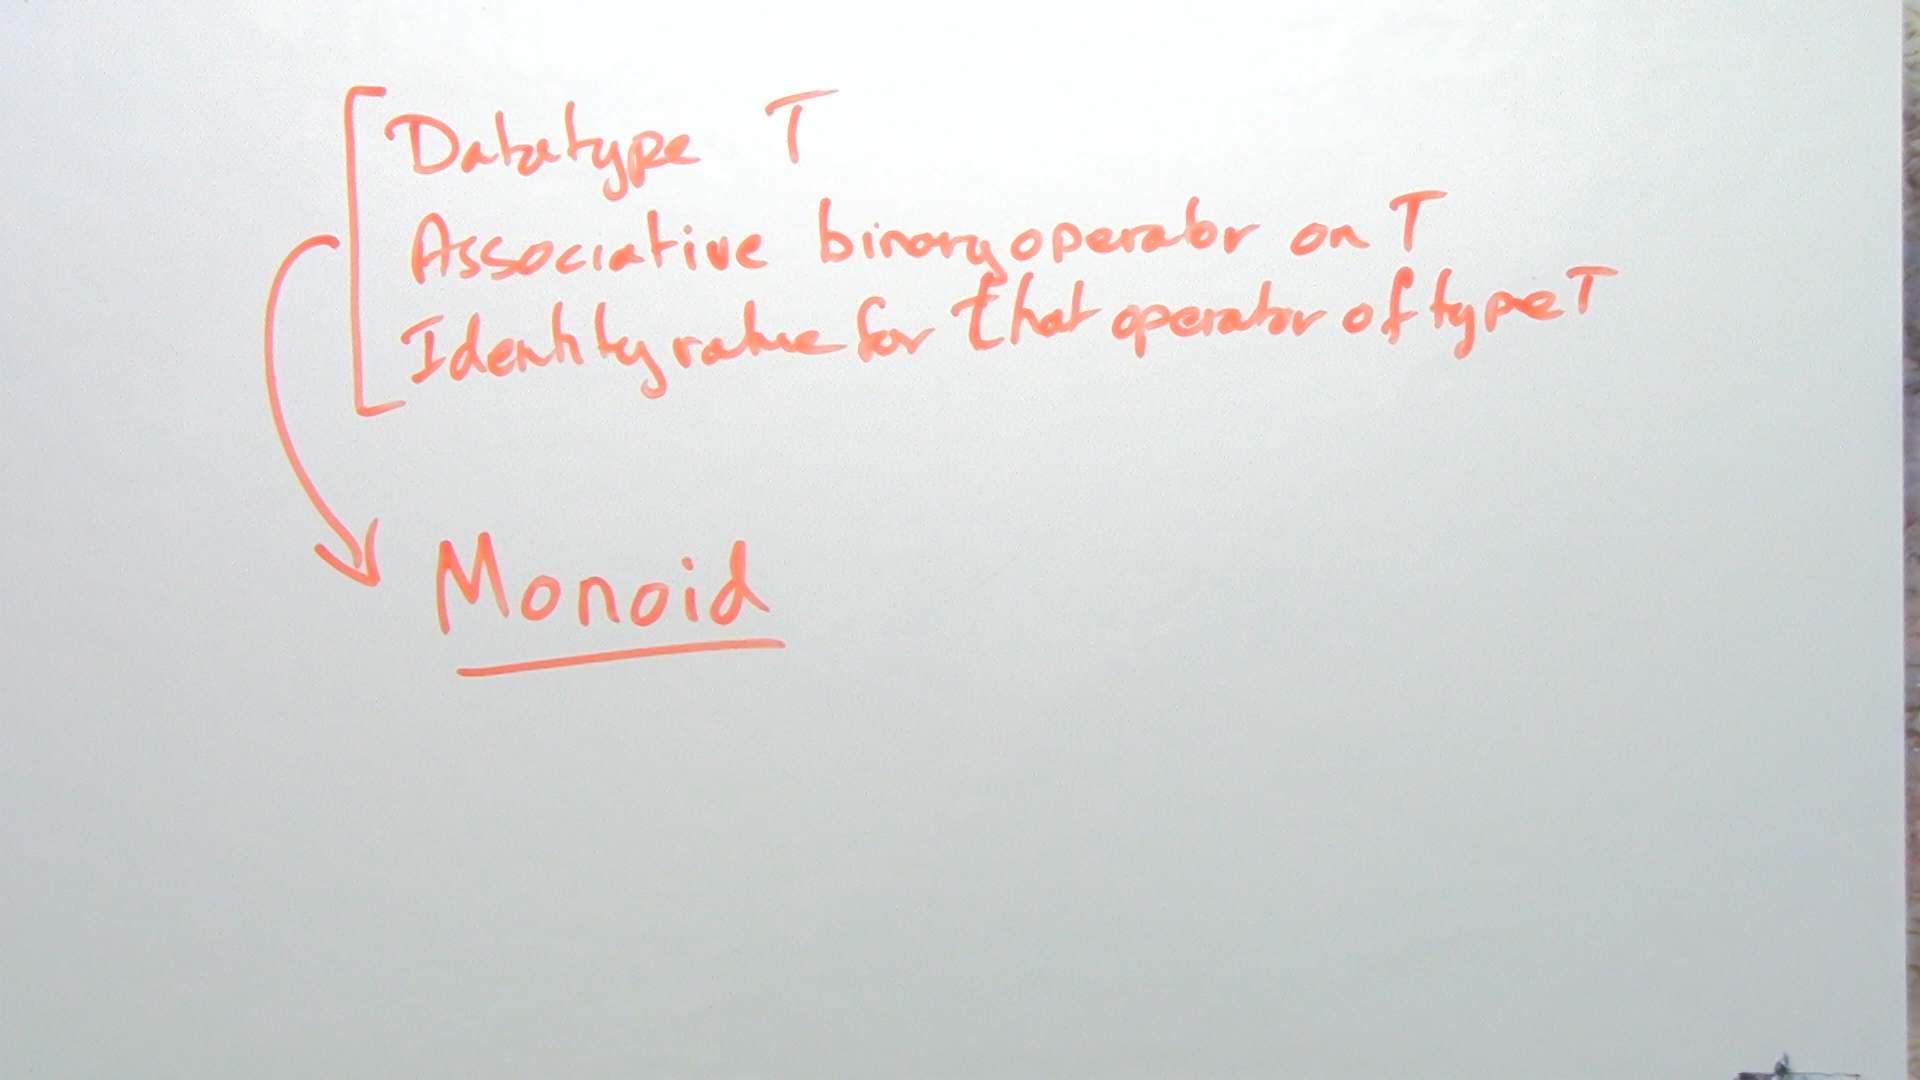 Datatype T
Associative binary operator on T
Identity value for that operator of type T
Monoid